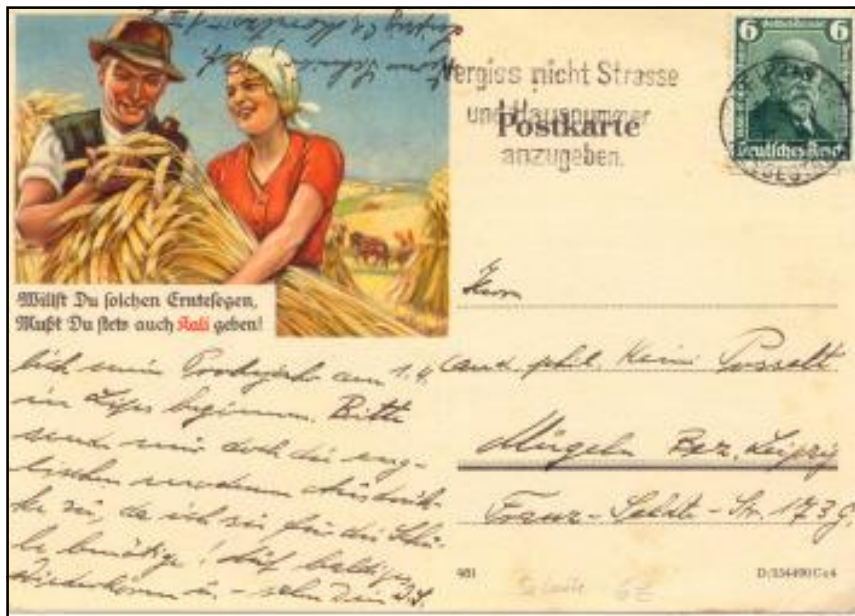 Vergiss nicht Strasse
und Hausnummer
anzugeben.
Postkarte
6 6
Deutsches Reich
Willst Du solchen Erntesegen,
Mußt Du stets auch Kali geben!
Herrn
cand. phil. Heini Posselt
Mügeln Bez. Leipzig
Franz-Seldte-Str. 173 g.
lich mein Probejahr am 1.4.
in Leipz. beginnen. Bitte
sende mir doch die eng-
lischen modernen
zu, da ich sie für die Schu-
le benötige! Auf baldiges
Wiederhören u. - sehn Dein
481
D/354490 C4